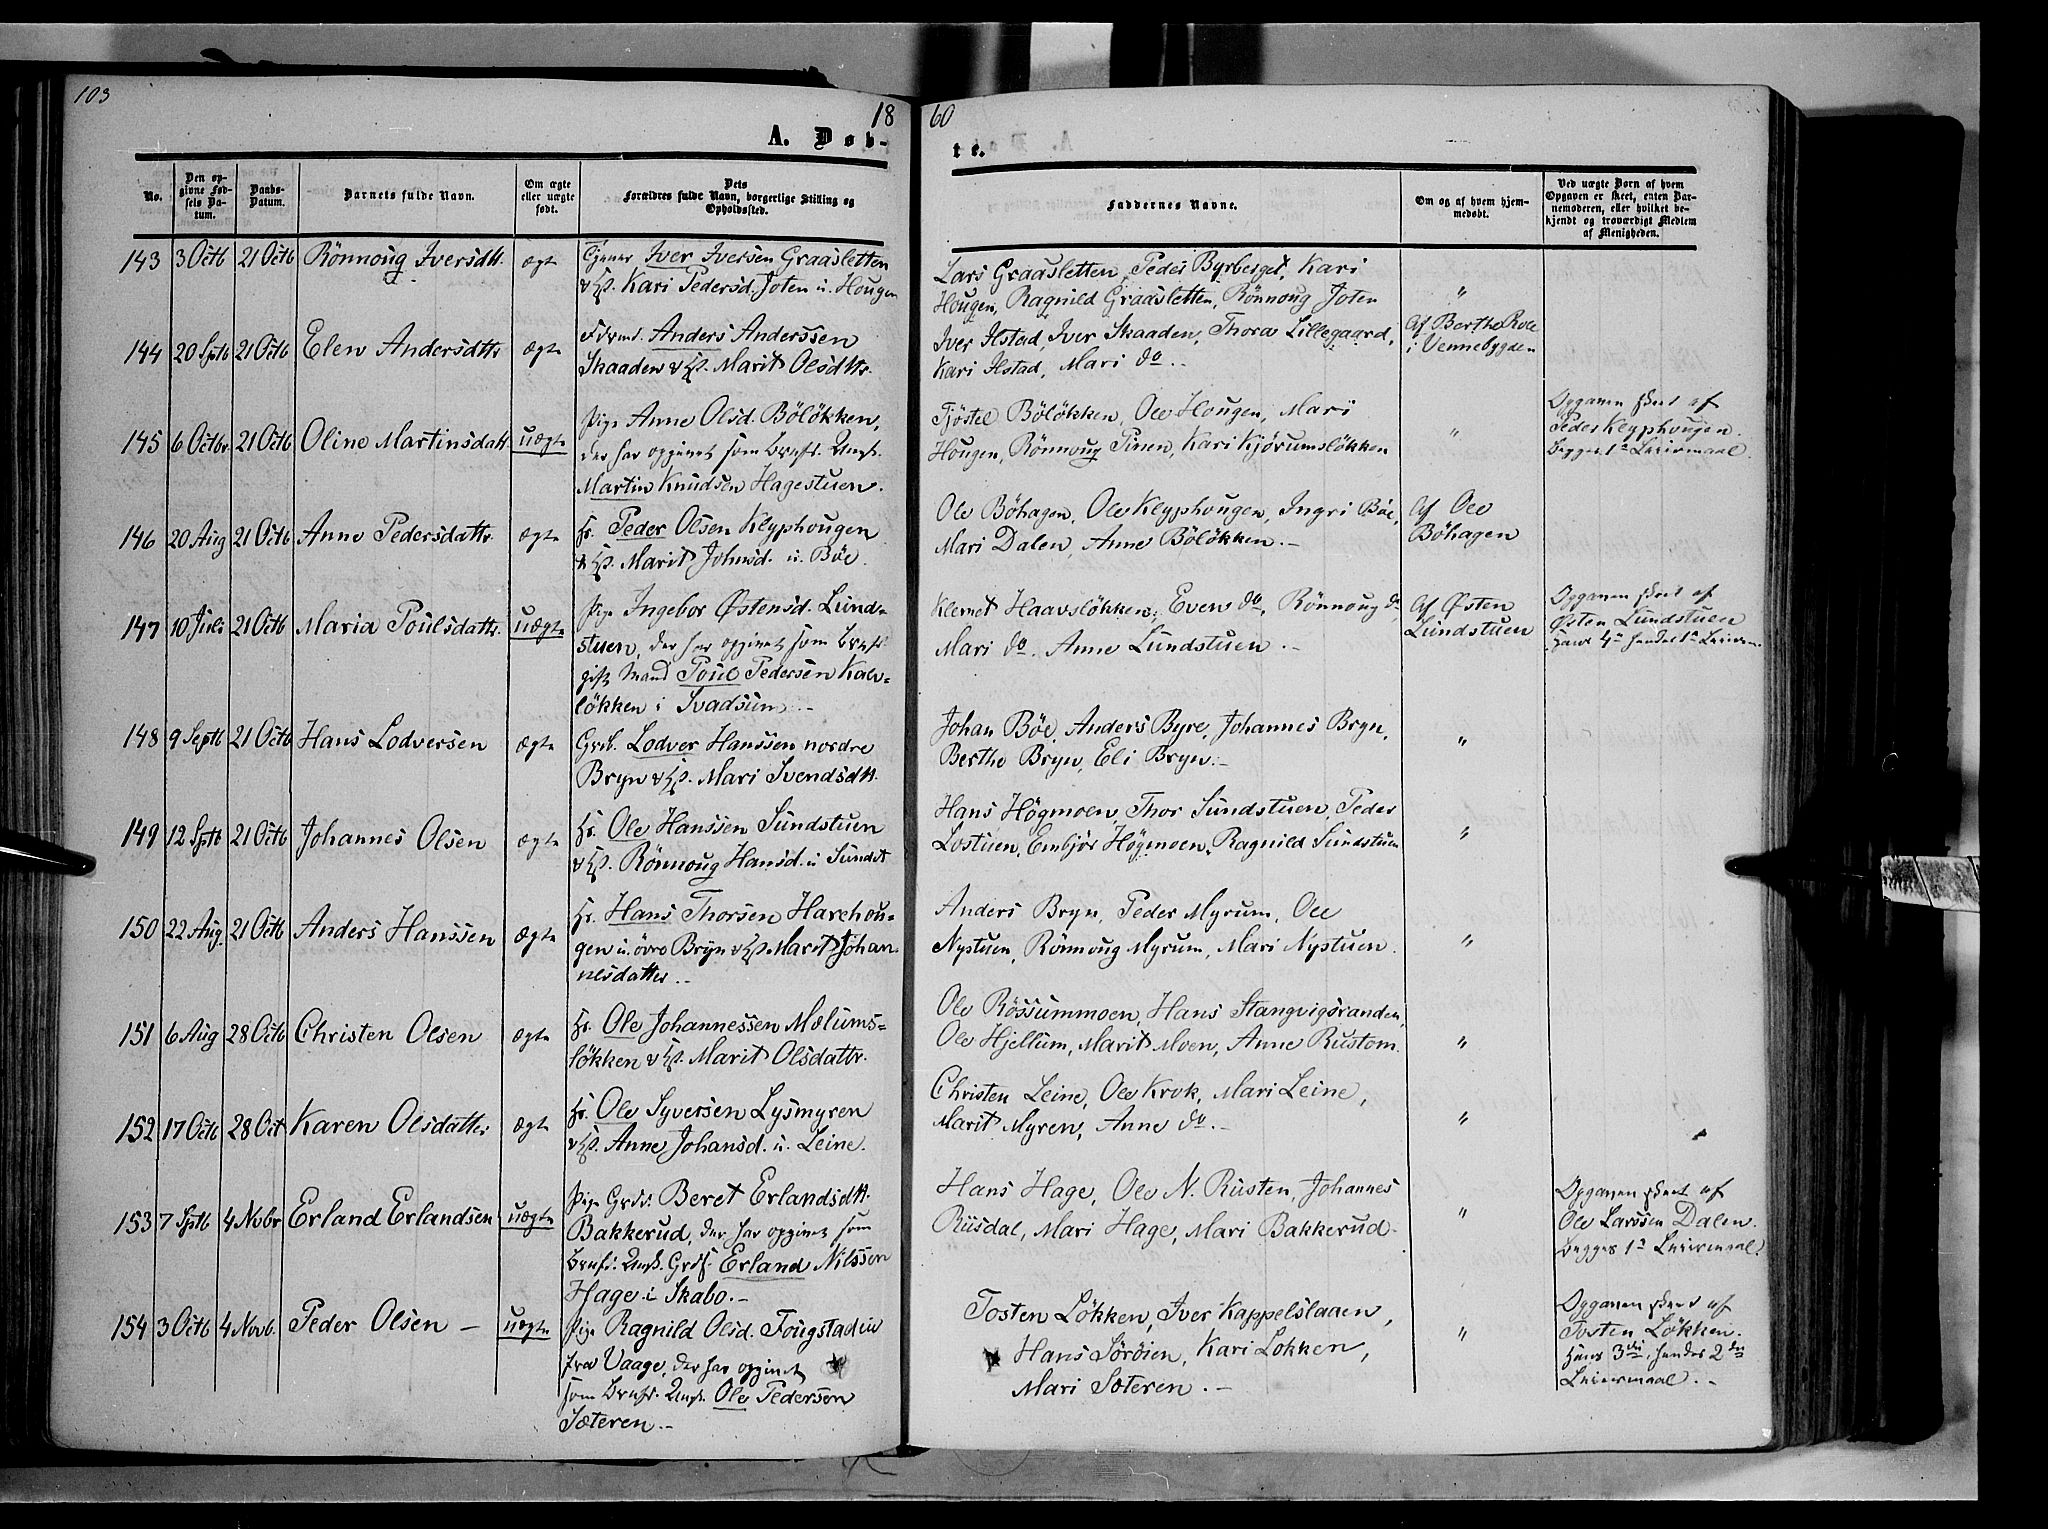 103
18
60
A. Døb-
te.
No.
Den op-
givne Fød-
sels Da-
tum.
Daabs-
Datum.
Barnets fulde Navn.
Om ægte
eller uægte
født.
Dets
Forældres fulde Navn, borgerlige Stilling og
Opholdssted.
Faddernes Navne.
Om og af hvem hjem-
medøbt.
Ved uægte Børn af hvem
Opgaven er skeet, enten Bar-
nemoderen, eller hvilket be-
kjendt og troværdigt Medlem
af Menigheden.
143 3 Octb 21 Octb Rönnoug Iversdtt. ægte Tjener Iver Iversen Graasletten
Kari Pedersd. Joten u. Hougen
Lars Graasletten, Peder Byrberget, Kari
Hougen, Ragnild Graasletten, Rönnoug Joten "
144 20 Sptb 21 Octb Elen Andersdttr ægte Anders Anderssen
Skaaden Marit Olsdttr.
Iver Ilstad, Iver Skaaden, Thora Lillegaard,
Kari Ilstad, Mari do.
Af Berthe
i Vennebygden
145 6 Octbr 21 Octb Oline Martinsdatt. uægte Pige Anne Olsd. Bölökken,
der har opgivet som Brnfr. Ungk.
Martin Knudsen Hagestuen.
Tjöstel Bölökken, Ole Hougen, Mari
Hougen, Rönnoug Pinen, Kari Kjörumslökken "
Opgaven skeet af
Peder Klyphougen.
Begges 1ste Leiermaal.
146 20 Aug 21 Octb Anne Pedersdattr. ægte Hr. Peder Olsen Klyphougen
Marit Johnsd. u. Böe.
Ole Böhagen, Ole Klyphougen, Ingri Böe,
Mari Dalen, Anne Bölökken.
Af Ole
Böhagen
147 10 Juli 21 Octb Maria Poulsdattr. uægte Pige Ingebor Østensd. Lund-
stuen, der har opgivet som Brnfr.
gift Mand Poul Pedersen Kalv-
lökken i Svadsum.
Klemet Haavslökken, Even do, Rönnoug do,
Mari do. Anne Lundstuen.
Af Østen
Lundstuen
Opgaven skeet af
Østen Lundstuen
148 9 Septb 21 Octb Hans Lodversen ægte Grb. Lodver Hanssen nordre
Bryn Mari Svendsdtt.
Johan Böe, Anders Byre, Johannes Bryn,
Berthe Bryn, Eli Bryn. "
149 12 Sptb 21 Octb Johannes Olsen ægte Hr. Ole Hanssen Sundstuen
Rönnoug Hansd. u Sundet
Hans Högmoen, Thor Sundstuen, Peder
Lostuen, Embjör Högmoen, Ragnild Sundstuen "
150 22 Aug. 21 Octb Anders Hanssen ægte Hr. Hans Thorsen Harehou-
gen u. övre Bryn Marit Johan-
nesdatter.
Anders Bryn, Peder Myrum, Ole
Nystuen, Rönnoug Myrum, Mari Nystuen. "
151 6 Aug 28 Octb Christen Olsen ægte Hr. Ole Johannessen Mælums-
lökken Marit Olsdattr.
Ole Rössummoen, Hans Stangvigsranden,
Ole Hjellum, Marit Moen, Anne Rustom. "
152 17 Octb 28 Oct Karen Olsdatter ægte Hr. Ole Syversen Lysmyren
Anne Johansd. u. Leine.
Christen Leine, Ole Krok, Mari Leine,
Marit Myren, Anne do. "
153 7 Sptb 4 Novbr Erland Erlandsen uægte Pige Grdd. Beret Erlandsdtt.
Bakkerud, der har opgivet som
Brnfr. Ungk. Grds. Erland Nilssen
Hage i Skabo.
Hans Hage, Ole N. Rusten, Johannes
Riisdal, Mari Hage, Mari Bakkerud. "
Opgaven skeet af
Ole Larssen Dalen.
Begges 1ste Leiermaal.
154 3 Octb 4 Novb. Peder Olsen uægte Pige Ragnild Olsd. Fougstadeie
fra Vaage, der har opgivet
som Brnfr. Ungk. Ole Pedersen
Sæteren.
Tosten Lökken, Iver Kappelslaaen,
Hans Söröien, Kari Lökken,
Mari Sæteren. "
Opgaven skeet af
Tosten Lökken.
Hans 3die, hendes 2det
Leiermaal.